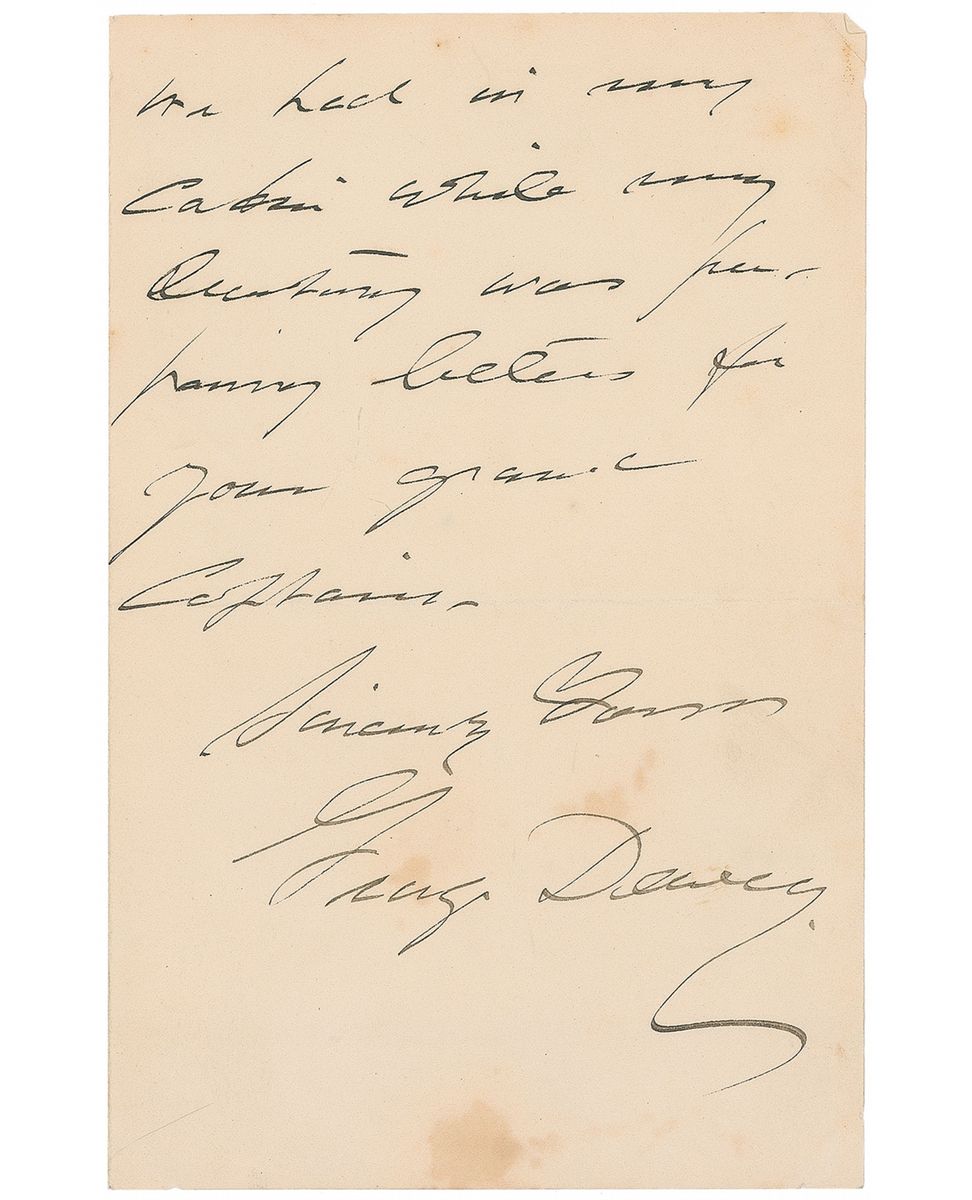 we had in my
cabin while my
Secretary was pre-
paring letters for
your grand
Captain.
Sincerely Yours
George Dewey